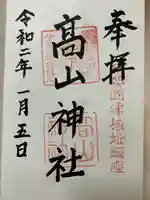 奉拝
國津城址鎮座
髙山神社
令和二年一月五日